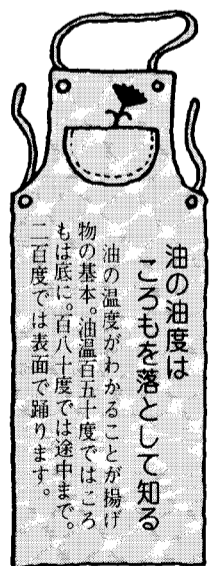 油の油度は
ころもを落として知る
油の温度がわかることが揚げ
物の基本。油温百五十度ではころ
もは底に。百八十度では途中まで。
二百度では表面で踊ります。